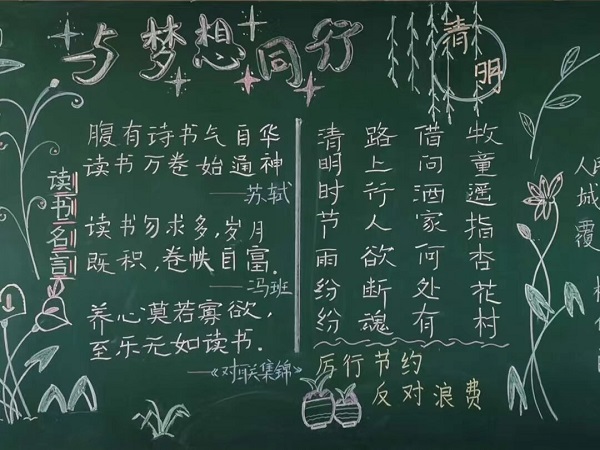 与梦想同行
清明
读书名言
腹有诗书气自华
读书万卷始通神
——苏轼
读书勿求多,岁月
既积,卷帙自富.
——冯班
养心莫若寡欲,
至乐无如读书.
——《对联集锦》
清明时节雨纷纷
路上行人欲断魂
借问酒家何处有
牧童遥指杏花村
厉行节约
反对浪费
人
城
覆